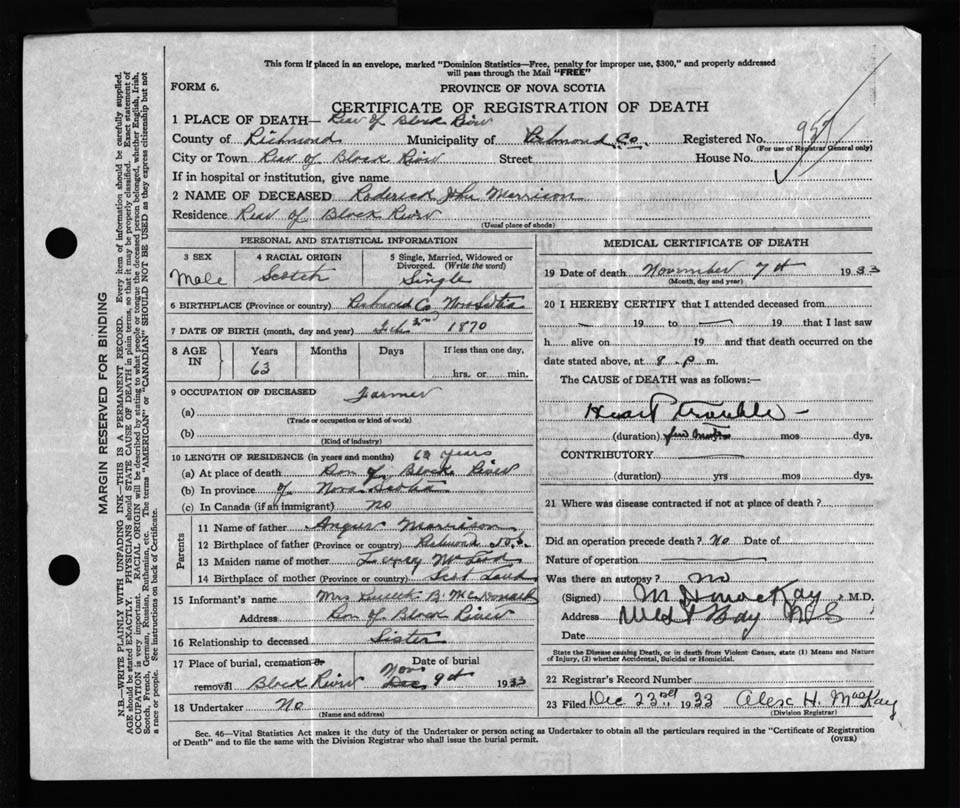 This form if placed in an envelope, marked "Dominion Statistics—Free, penalty for improper use, $300," and properly addressed
will pass through the Mail "FREE"
FORM 6.
PROVINCE OF NOVA SCOTIA
CERTIFICATE OF REGISTRATION OF DEATH
1 PLACE OF DEATH— Rear of Black River
County of Richmond Municipality of Richmond Co. Registered No.
(For use of Registrar General only)
City or Town Rear of Black River Street House No.
If in hospital or institution, give name
2 NAME OF DECEASED Roderick John Morrison
Residence Rear of Black River
(Usual place of abode)
PERSONAL AND STATISTICAL INFORMATION
3 SEX 4 RACIAL ORIGIN 5 Single, Married, Widowed or
Divorced. (Write the word)
Male Scotch Single
6 BIRTHPLACE (Province or country) Richmond Co Nova Scotia
7 DATE OF BIRTH (month, day and year) 1870
8 AGE IN Years Months Days If less than one day,
63 hrs. or min.
9 OCCUPATION OF DECEASED Farmer
(a)
(Trade or occupation or kind of work)
(b)
(Kind of industry)
10 LENGTH OF RESIDENCE (in years and months) years
(a) At place of death of Black River
(b) In province of Nova Scotia
(c) In Canada (if an immigrant) No
Parents
11 Name of father Angus Morrison
12 Birthplace of father (Province or country) Richmond N.S.
13 Maiden name of mother
14 Birthplace of mother (Province or country) Scot Land
15 Informant's name Mrs B. McDonald
Address of Black River
16 Relationship to deceased Sister
17 Place of burial, cremation or Date of burial
Nov
removal Black River Dec 9th 1933
18 Undertaker No
(Name and address)
MEDICAL CERTIFICATE OF DEATH
19 Date of death November 7th 1933
(Month, day and year)
20 I HEREBY CERTIFY that I attended deceased from
19 to 19 that I last saw
h alive on 19 and that death occurred on the
date stated above, at 8. P. m.
The CAUSE of DEATH was as follows:—
Heart trouble -
(duration) few mos dys.
CONTRIBUTORY
(duration) yrs mos dys.
21 Where was disease contracted if not at place of death?
Did an operation precede death? No Date of
Nature of operation
Was there an autopsy? no
(Signed) MacKay M.D.
Address West Bay NS
Date
State the Disease causing Death, or in death from Violent Causes, state (1) Means and Nature
of Injury, (2) whether Accidental, Suicidal or Homicidal.
22 Registrar's Record Number
23 Filed Dec 23rd 1933 Alex H. MacKay
(Division Registrar)
Sec. 46—Vital Statistics Act makes it the duty of the Undertaker or person acting as Undertaker to obtain all the particulars required in the "Certificate of Registration
of Death" and to file the same with the Division Registrar who shall issue the burial permit.
(OVER)
MARGIN RESERVED FOR BINDING
N.B.—WRITE PLAINLY WITH UNFADING INK—THIS IS A PERMANENT RECORD. Every item of information should be carefully supplied.
AGE should be stated EXACTLY. PHYSICIANS should STATE CAUSE OF DEATH in plain terms, so that it may be properly classified. Exact statement of
OCCUPATION is very important. RACIAL ORIGIN will be described by stating to what people or tongue the deceased person belonged, whether English, Irish,
Scotch, French, German, Russian, Ruthenian, etc. The terms "AMERICAN" or "CANADIAN" SHOULD NOT BE USED as they express citizenship but not
a race or people. See instructions on back of Certificate.